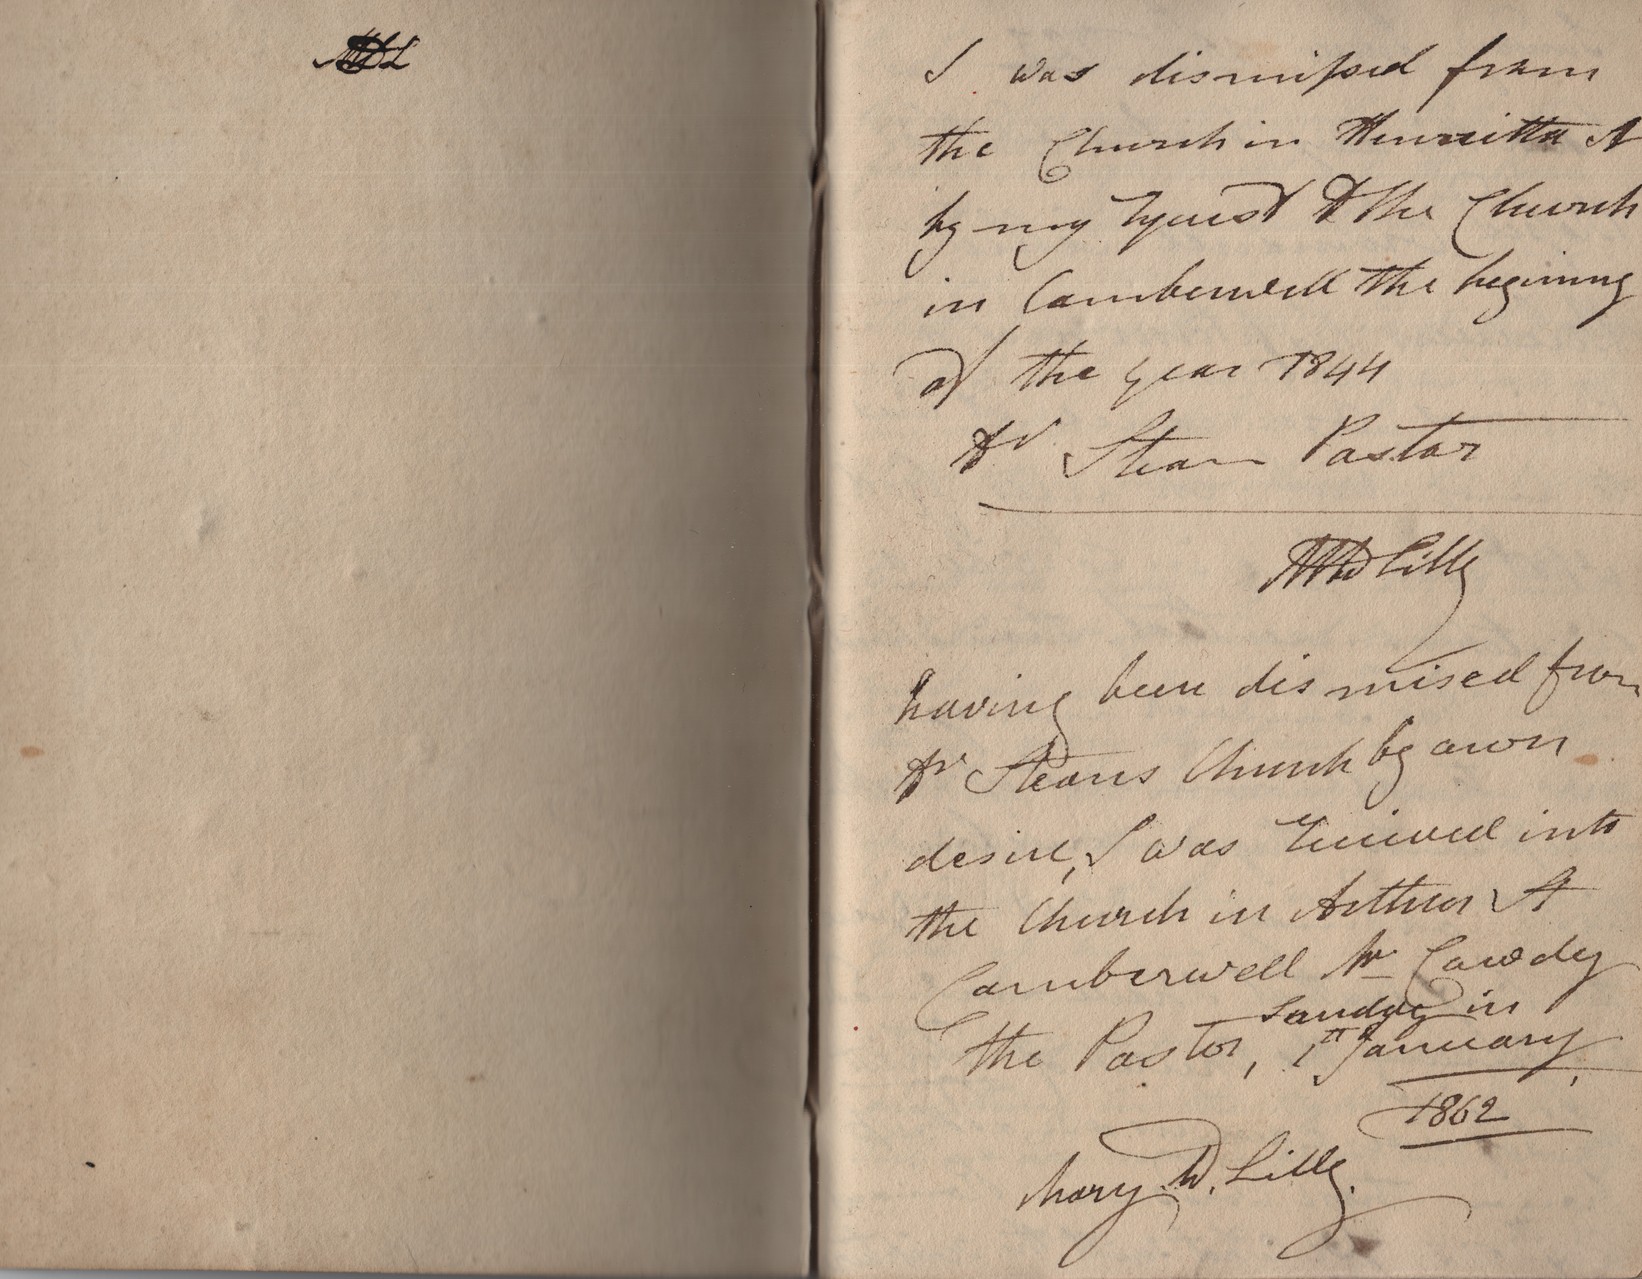 I was dismissed from
the Church in Henrietta St
by my request to the Church
in Camberwell the begining
of the year 1844
Dr Stean Pastor
Lilly
having been dismised from
Dr Steans Church by own
desire, I was received into
the Church in Arthur St
Camberwell Mr Cowdy
the Pastor, 1st Sunday in
January
1862
Mary W. Lilly.